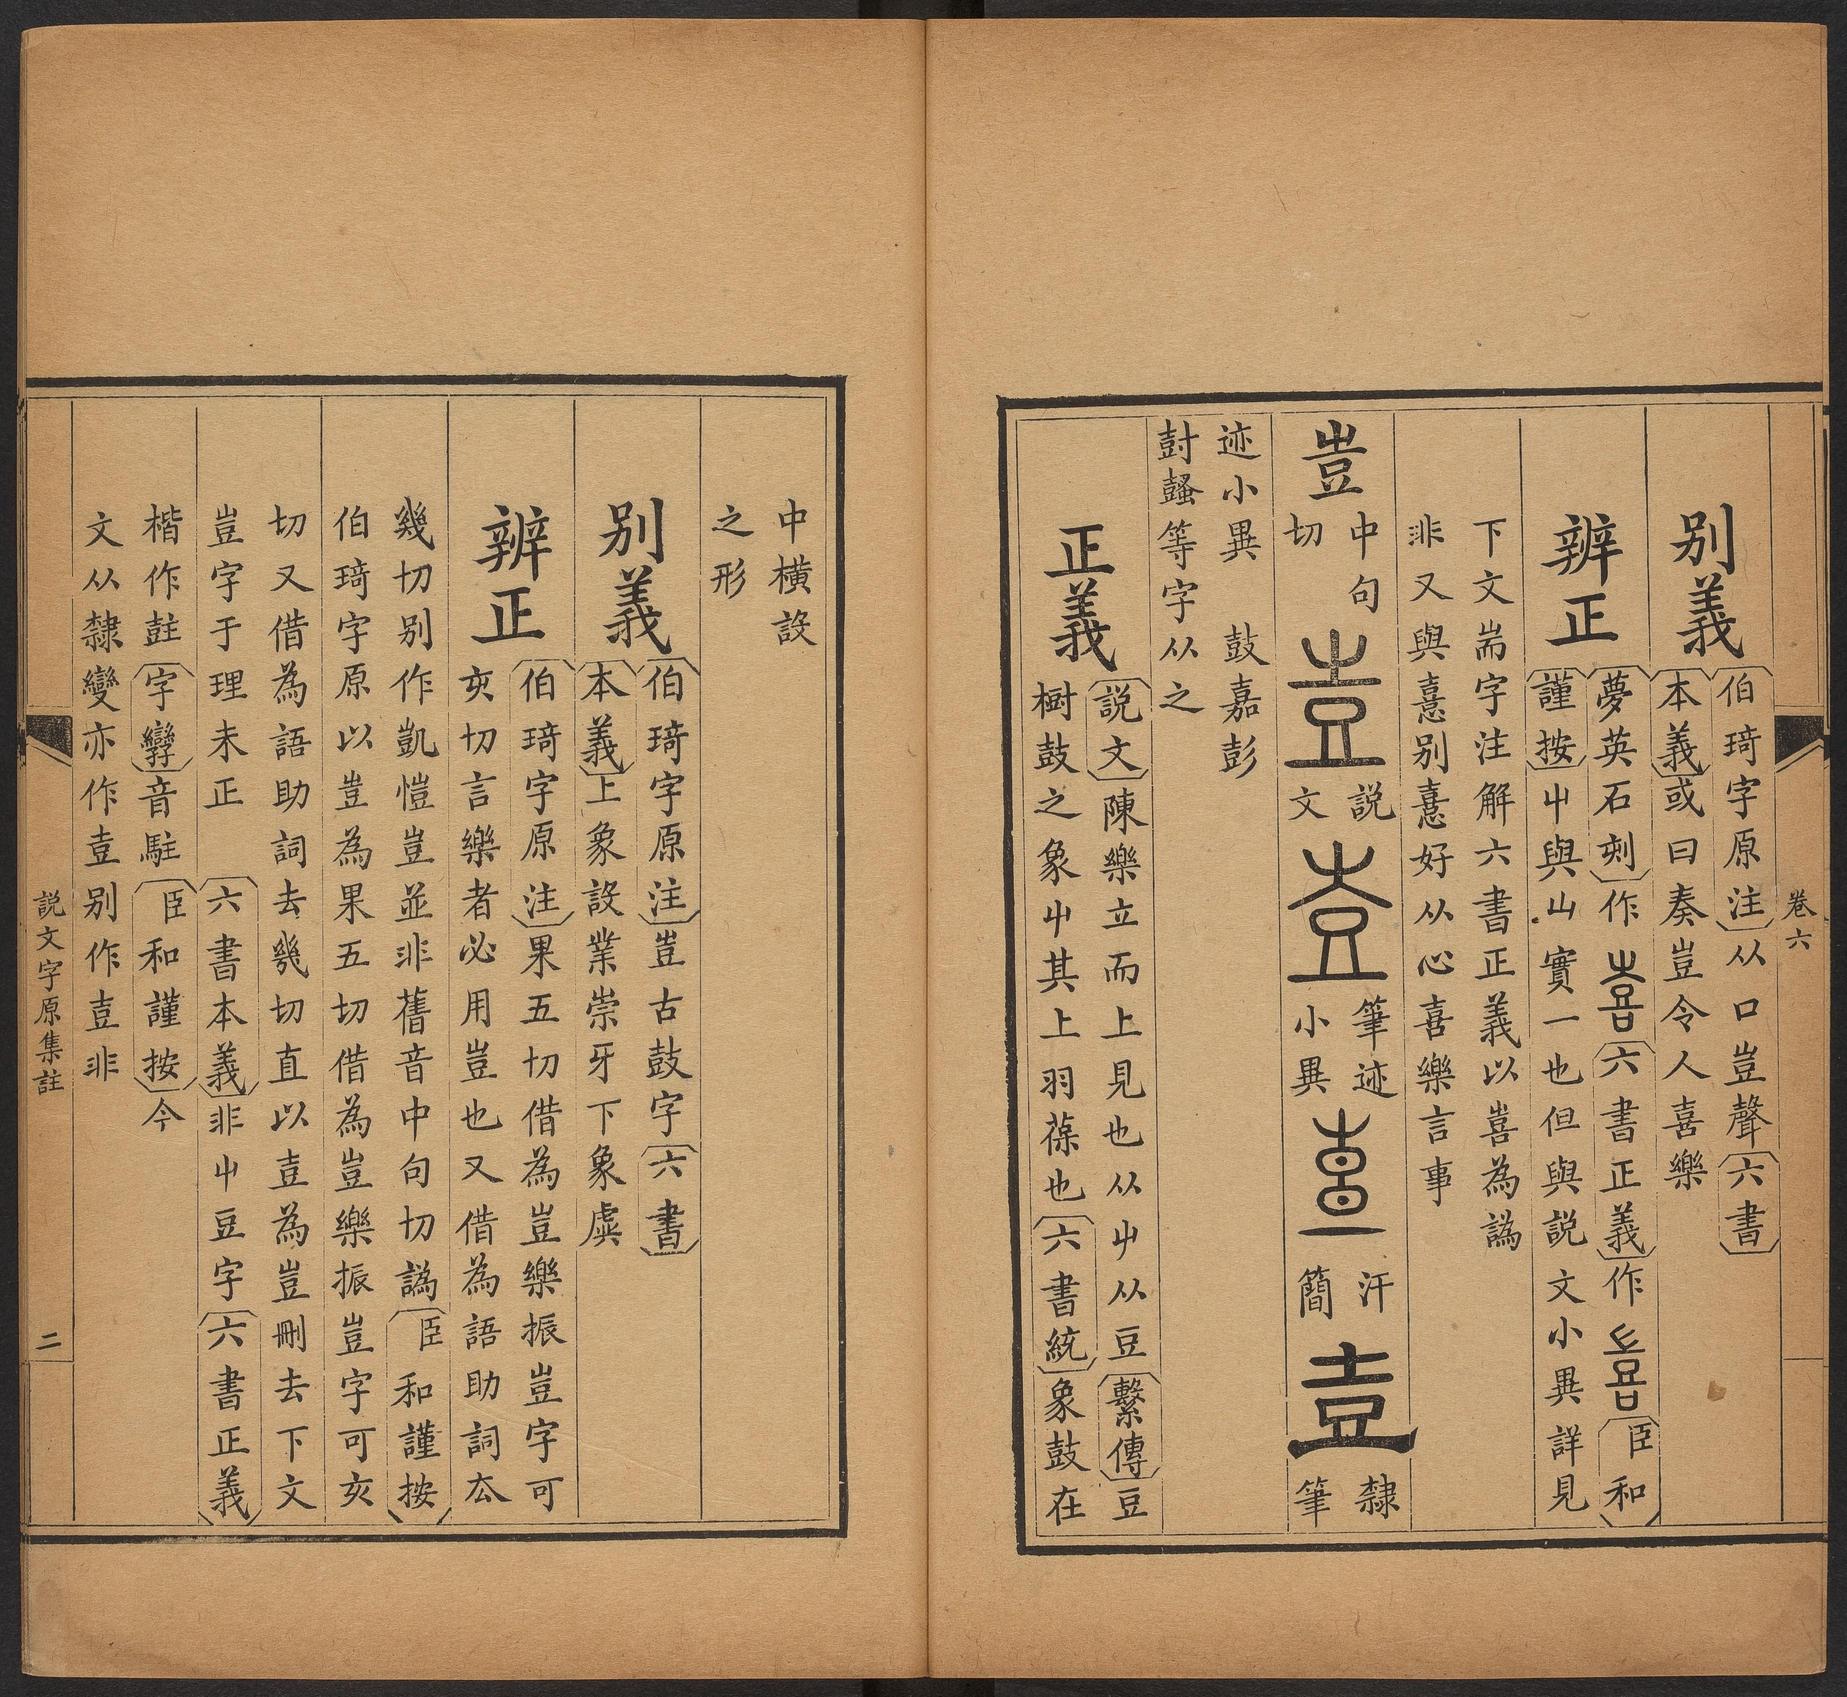 卷六
别義
伯琦字原注从口豈聲六書
本義或曰奏豈令人喜樂
辨正
夢英石刻作六書正義作臣和
謹按屮與山實一也但與説文小異詳見
下文耑字注解六書正義以喜為譌
非又與憙别憙好从心喜樂言事
豈中句
切
壴說
文
壴筆迹
小異
壴汗
簡
壴隸
筆
迹小異 鼓嘉彭
尌等字从之
正義
説文陳樂立而上見也从屮从豆繫傳豆
樹鼓之象屮其上羽葆也六書統象鼓在
中橫設
之形
别義
伯琦字原注豈古鼓字六書
本義上象設業崇牙下象虡
辨正
伯琦字原注果五切借為豈樂振豈字可
亥切言樂者必用豈也又借為語助詞厺
幾切别作凱愷豈並非舊音中句切譌臣和謹按
伯琦字原以豈為果五切借為豈樂振豈字可亥
切又借為語助詞去幾切直以壴為豈刪去下文
豈字于理未正 六書本義非屮豆字六書正義
楷作䇠字孿音駐臣和謹按今
文从隸變亦作壴别作壴非
説文字原集註
二